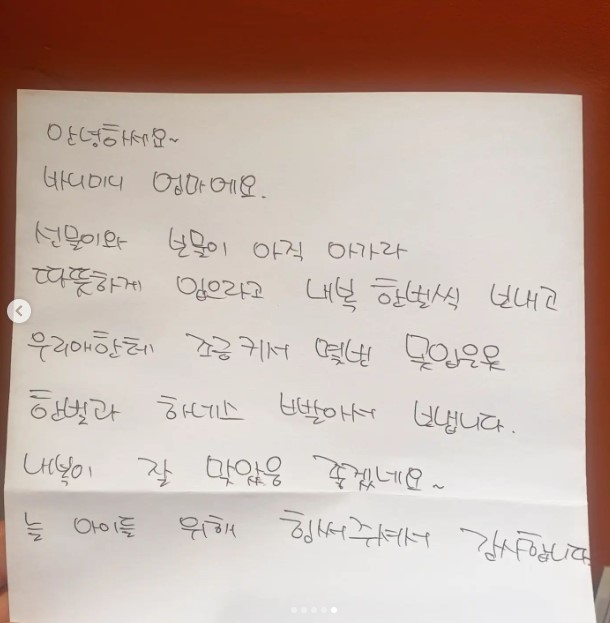 안녕하세요~
바디미디 엄마에요.
선물이와 보물이 아직 아가라
따뜻하게 입으라고 내복 한벌씩 보내고
우리애한테 조금 커서 몇번 못입은옷
한벌과 하네스 빨아서 보냅니다.
내복이 잘 맞았음 좋겠네요~
늘 아이들 위해 힘써주셔서 감사합니다